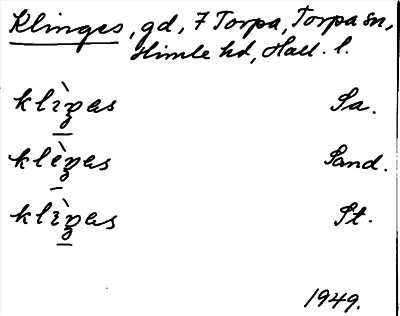 Klinges, gd, 7 Torpa, Torpa sn,
Himle hd, Hall. l.
klìŋas Sa.
klèŋas Sand.
klìŋas St.
1949.